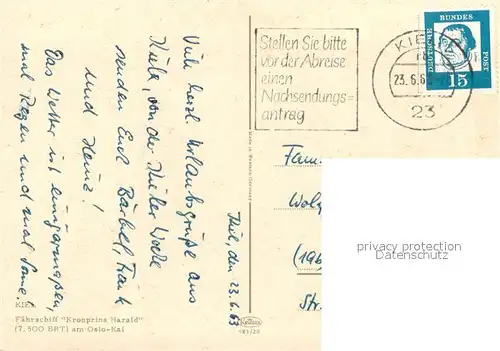 Viele herzl. Urlaubsgrüße aus
Kiel, von der Kieler Woche
senden Euch Bärbel, Frank
und Heinz!
Das Wetter ist einigermaßen,
mal Regen und mal Sonne!
Kiel, den 23.6.63
KIEL
Fährschiff "Kronprins Harald"
(7.500 BRT) am Oslo-Kai
Stellen Sie bitte
vor der Abreise
einen
Nachsendungs=
antrag
KIEL
23.6.6
23
DEUTSCHE BUNDESPOST
15
Fam.
Str.
privacy protection
Datenschutz